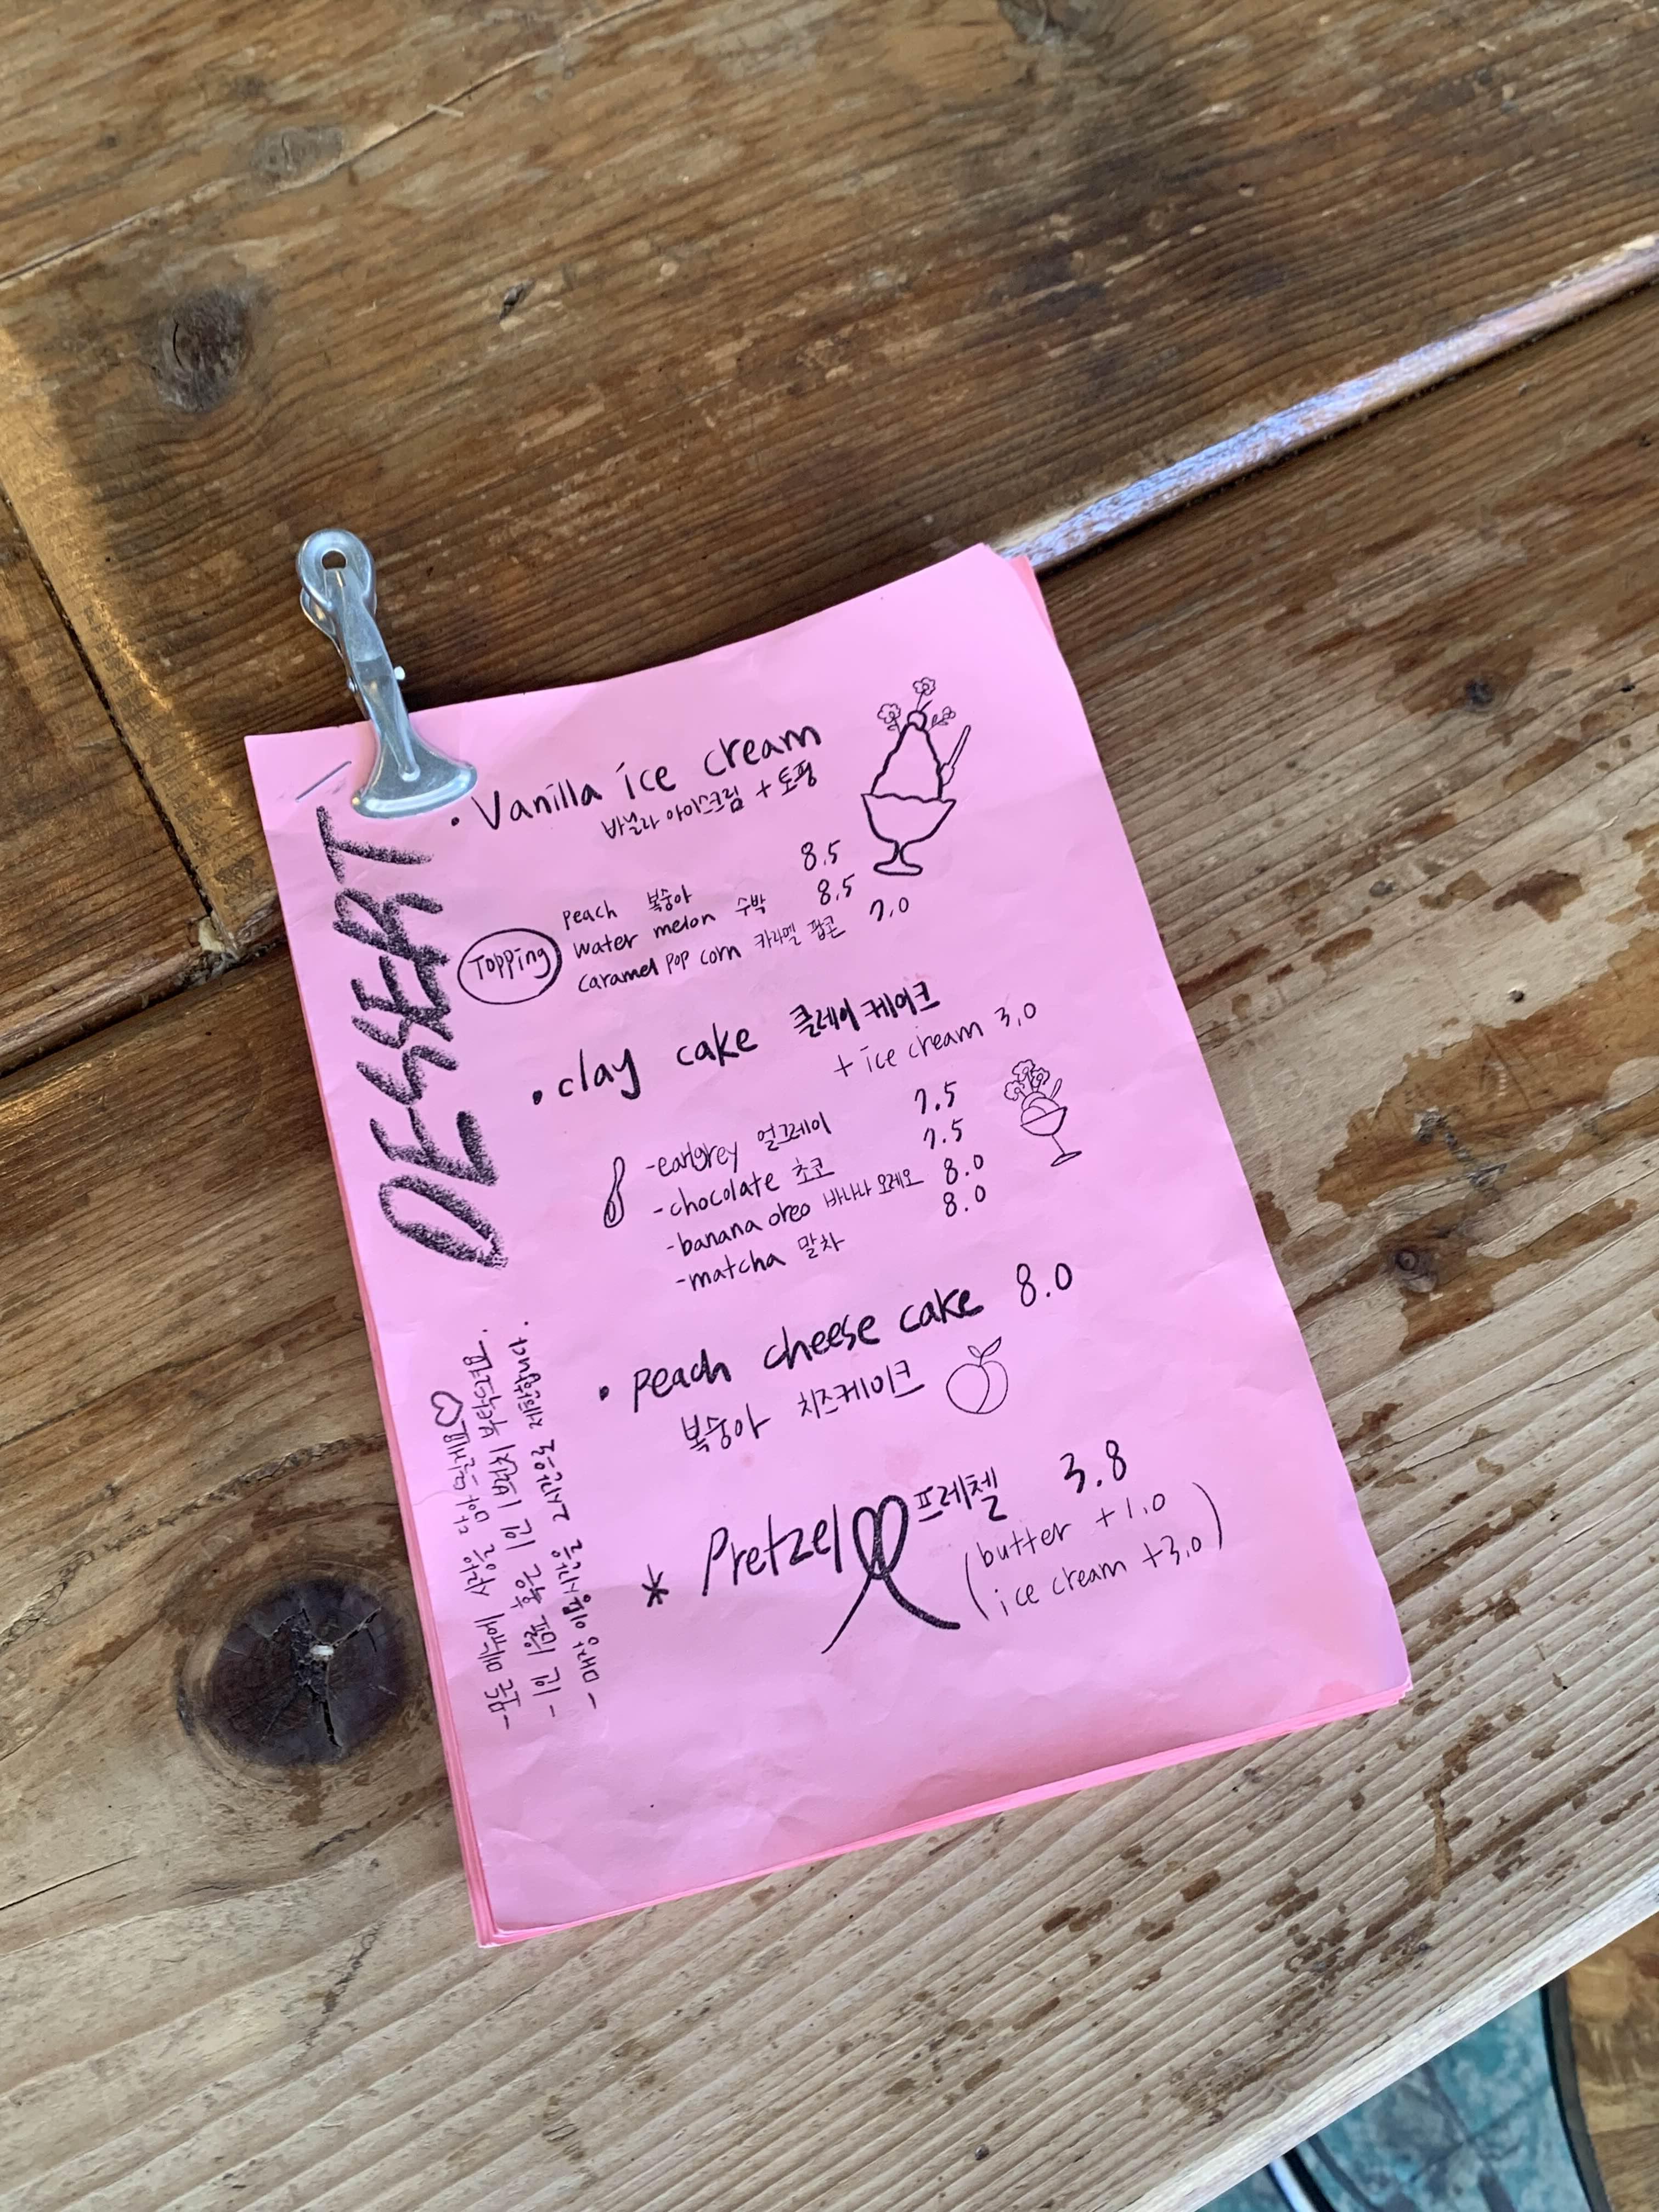 DESSERT
• Vanilla ice cream
바닐라 아이스크림 + 토핑
Topping
peach 복숭아 8.5
water melon 수박 8.5
caramel pop corn 카라멜 팝콘 7.0
• clay cake 클레이 케이크
+ ice cream 3.0
-earlgrey 얼그레이 7.5
-chocolate 초코 7.5
-banana oreo 바나나 오레오 8.0
-matcha 말차 8.0
• peach cheese cake 8.0
복숭아 치즈케이크
* Pretzel 프레첼 3.8
(butter + 1.0
ice cream +3.0)
- 매장 이용시간을 2시간으로 제한합니다.